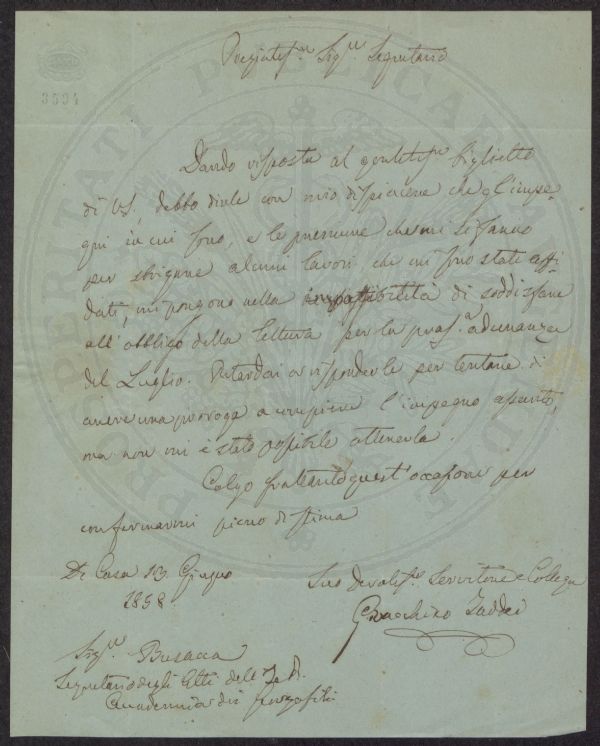 3594
PROSPERITATI PUBLICAE AUGENDAE
Pregiatis.mo Sig.re Segretario
Dando risposta al gentilis.mo biglietto
di VS. debbo dirle con mio dispiacere che gl'impe-
gni in cui sono, e le premure che mi si fanno
per sbrigare alcuni lavori che mi sono stati affi-
dati, mi pongono nella impossibilità di soddisfare
all'obbligo della lettura per la pross.a adunanza
del Luglio. Ritardai a risponderle per tentare di
avere una proroga a compiere l'impegno assunto,
ma non mi è stato possibile ottenerla.
Colgo frattanto quest'occasione per
confermarmi pieno di stima
Di Casa 13 Giugno
1858
Suo Devotis.mo Servitore e Collega
Gioacchino Taddei
Sig.re Busacca
Segretario degli Atti dell'I. e R.
Accademia dei Georgofili